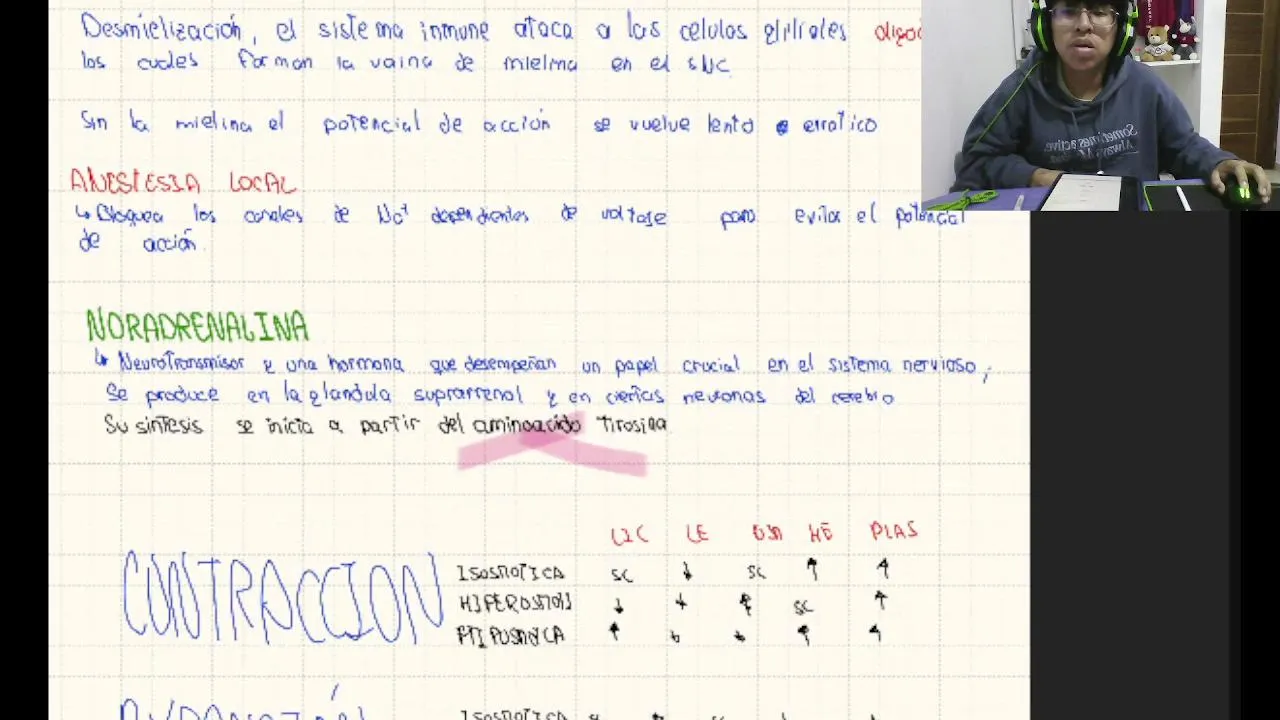 Desmielización, el sistema inmune ataca a las celulas gliriales
los cuales forman la vaina de mielina en el SNC
Sin la mielina el potencial de acción se vuelve lento e erratico
ANESTESIA LOCAL
↳ Bloquea los canales de Na+ dependientes de voltaje para evitar el potencial
de acción.
NORADRENALINA
↳ Neurotransmisor y una hormona que desempeñan un papel crucial en el sistema nervioso,
Se produce en la glandula suprarrenal y en ciertas neuronas del cerebro
Su sintesis se inicia a partir del aminoacido tirosina
LIC LE OSM HE PLAS
CONTRACCION
ISOSMOTICA SC ↓ SC ↑ ↑
↓ ↓ ↑ SC ↑
↑ ↓ ↓ ↑ ↑
ISOSMOTICA
Sometimes active.